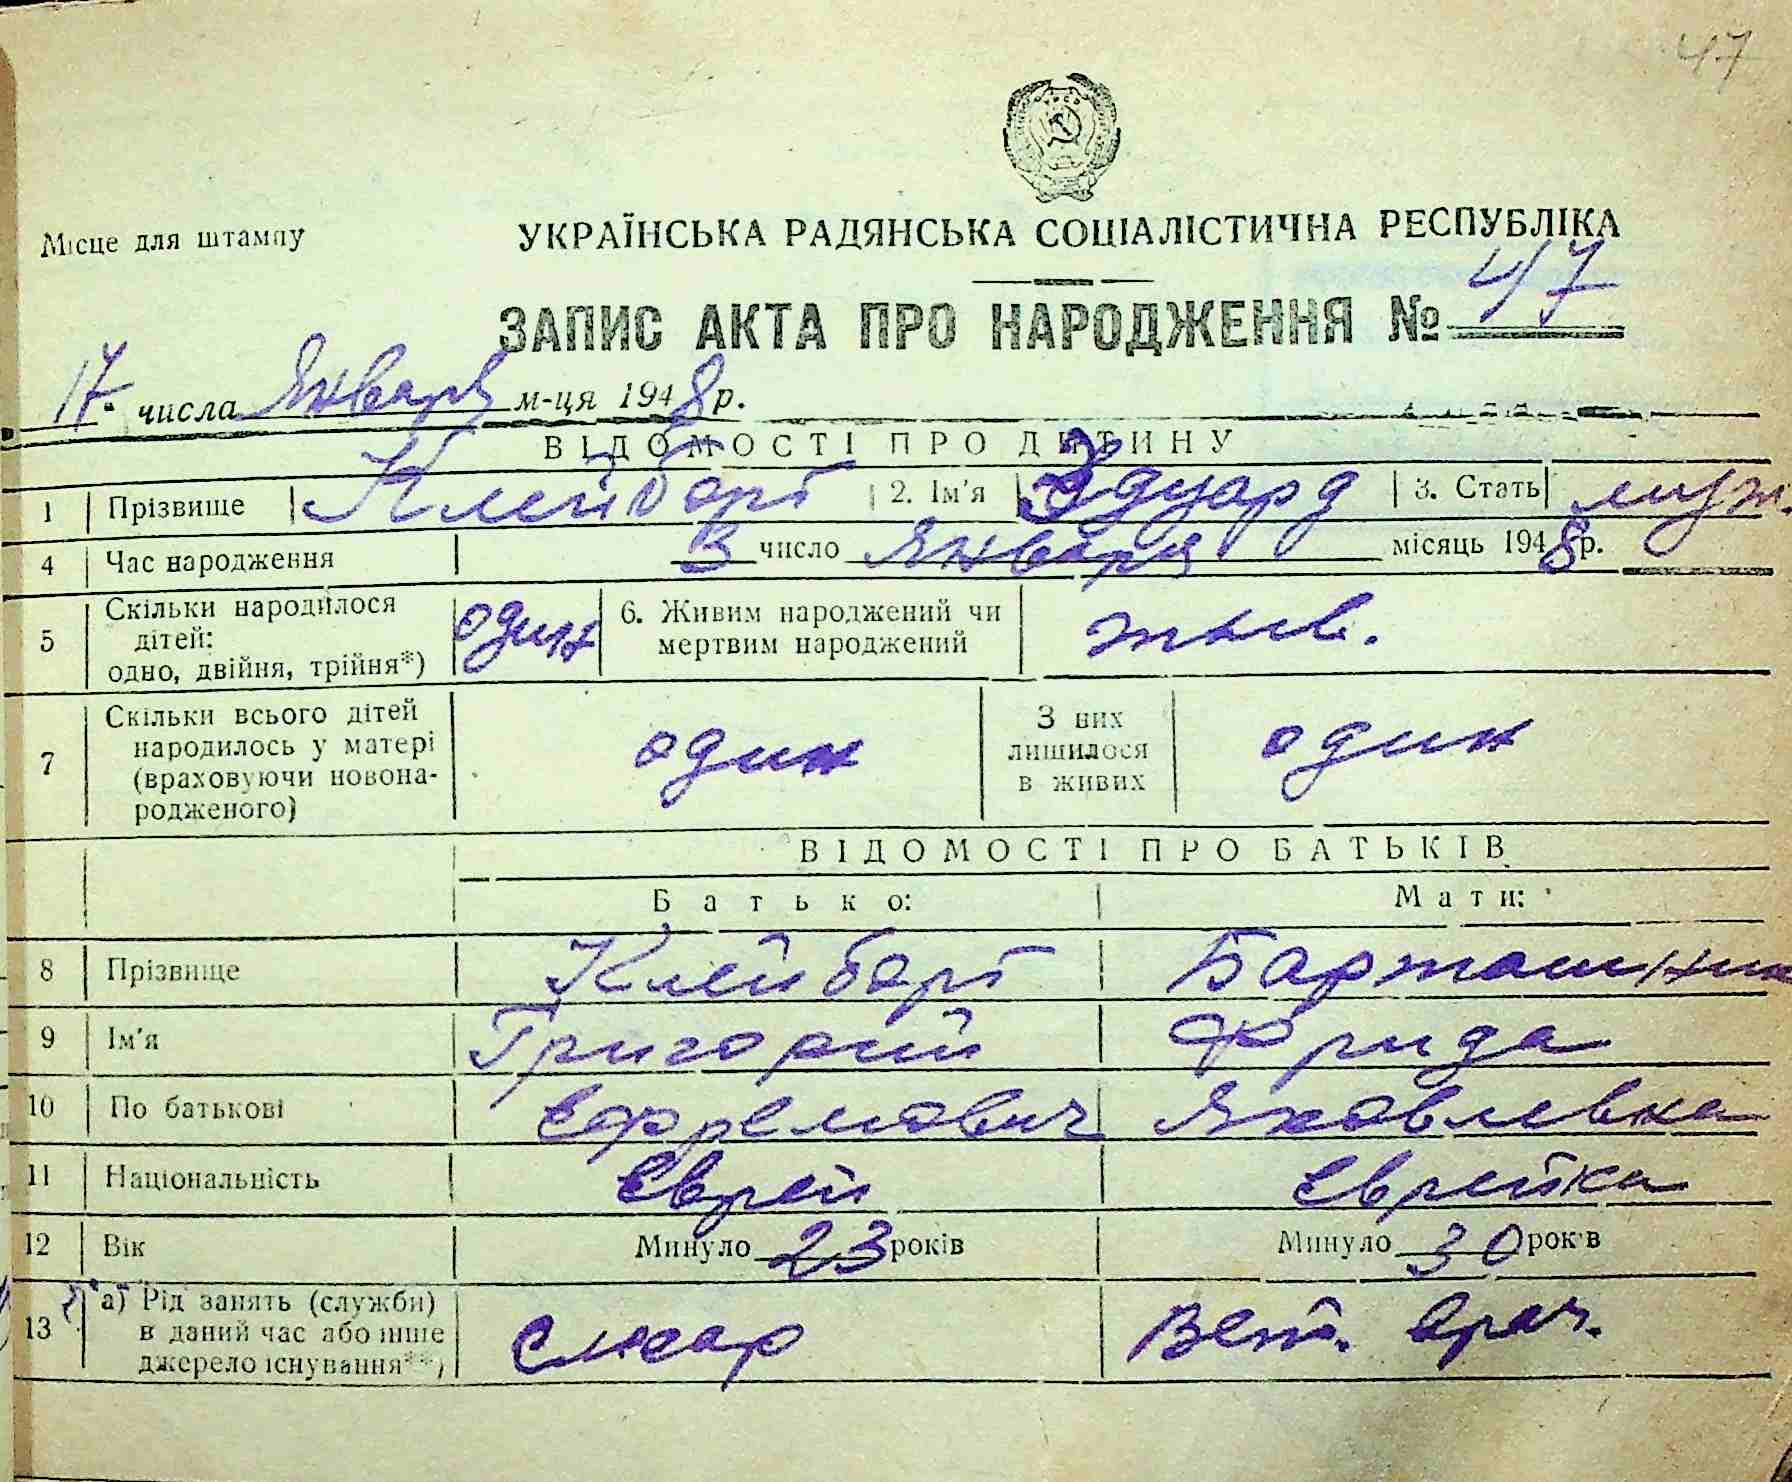 47
Місце для штампу
УКРАЇНСЬКА РАДЯНСЬКА СОЦІАЛІСТИЧНА РЕСПУБЛІКА
ЗАПИС АКТА ПРО НАРОДЖЕННЯ № 47
17 числа Января м-ця 1948 р.
ВІДОМОСТІ ПРО ДИТИНУ
1 Прізвище Клейборт 2. Ім'я Эдуард 3. Стать муж.
4 Час народження 3 число Января місяць 1948 р.
5 Скільки народилося дітей: одно, двійня, трійня*) один 6. Живим народжений чи мертвим народжений
7 Скільки всього дітей народилось у матері (враховуючи новонародженого) один З них лишилося в живих один
ВІДОМОСТІ ПРО БАТЬКІВ
Батько: Мати:
8 Прізвище Клейборт
9 Ім'я Григорий Фрида
10 По батькові Ефремович Яковлевна
11 Національність Еврей Еврейка
12 Вік Минуло 23 років Минуло 30 років
13 а) Рід занять (служби) в даний час або інше джерело існування**) Слесар Вет. врач.